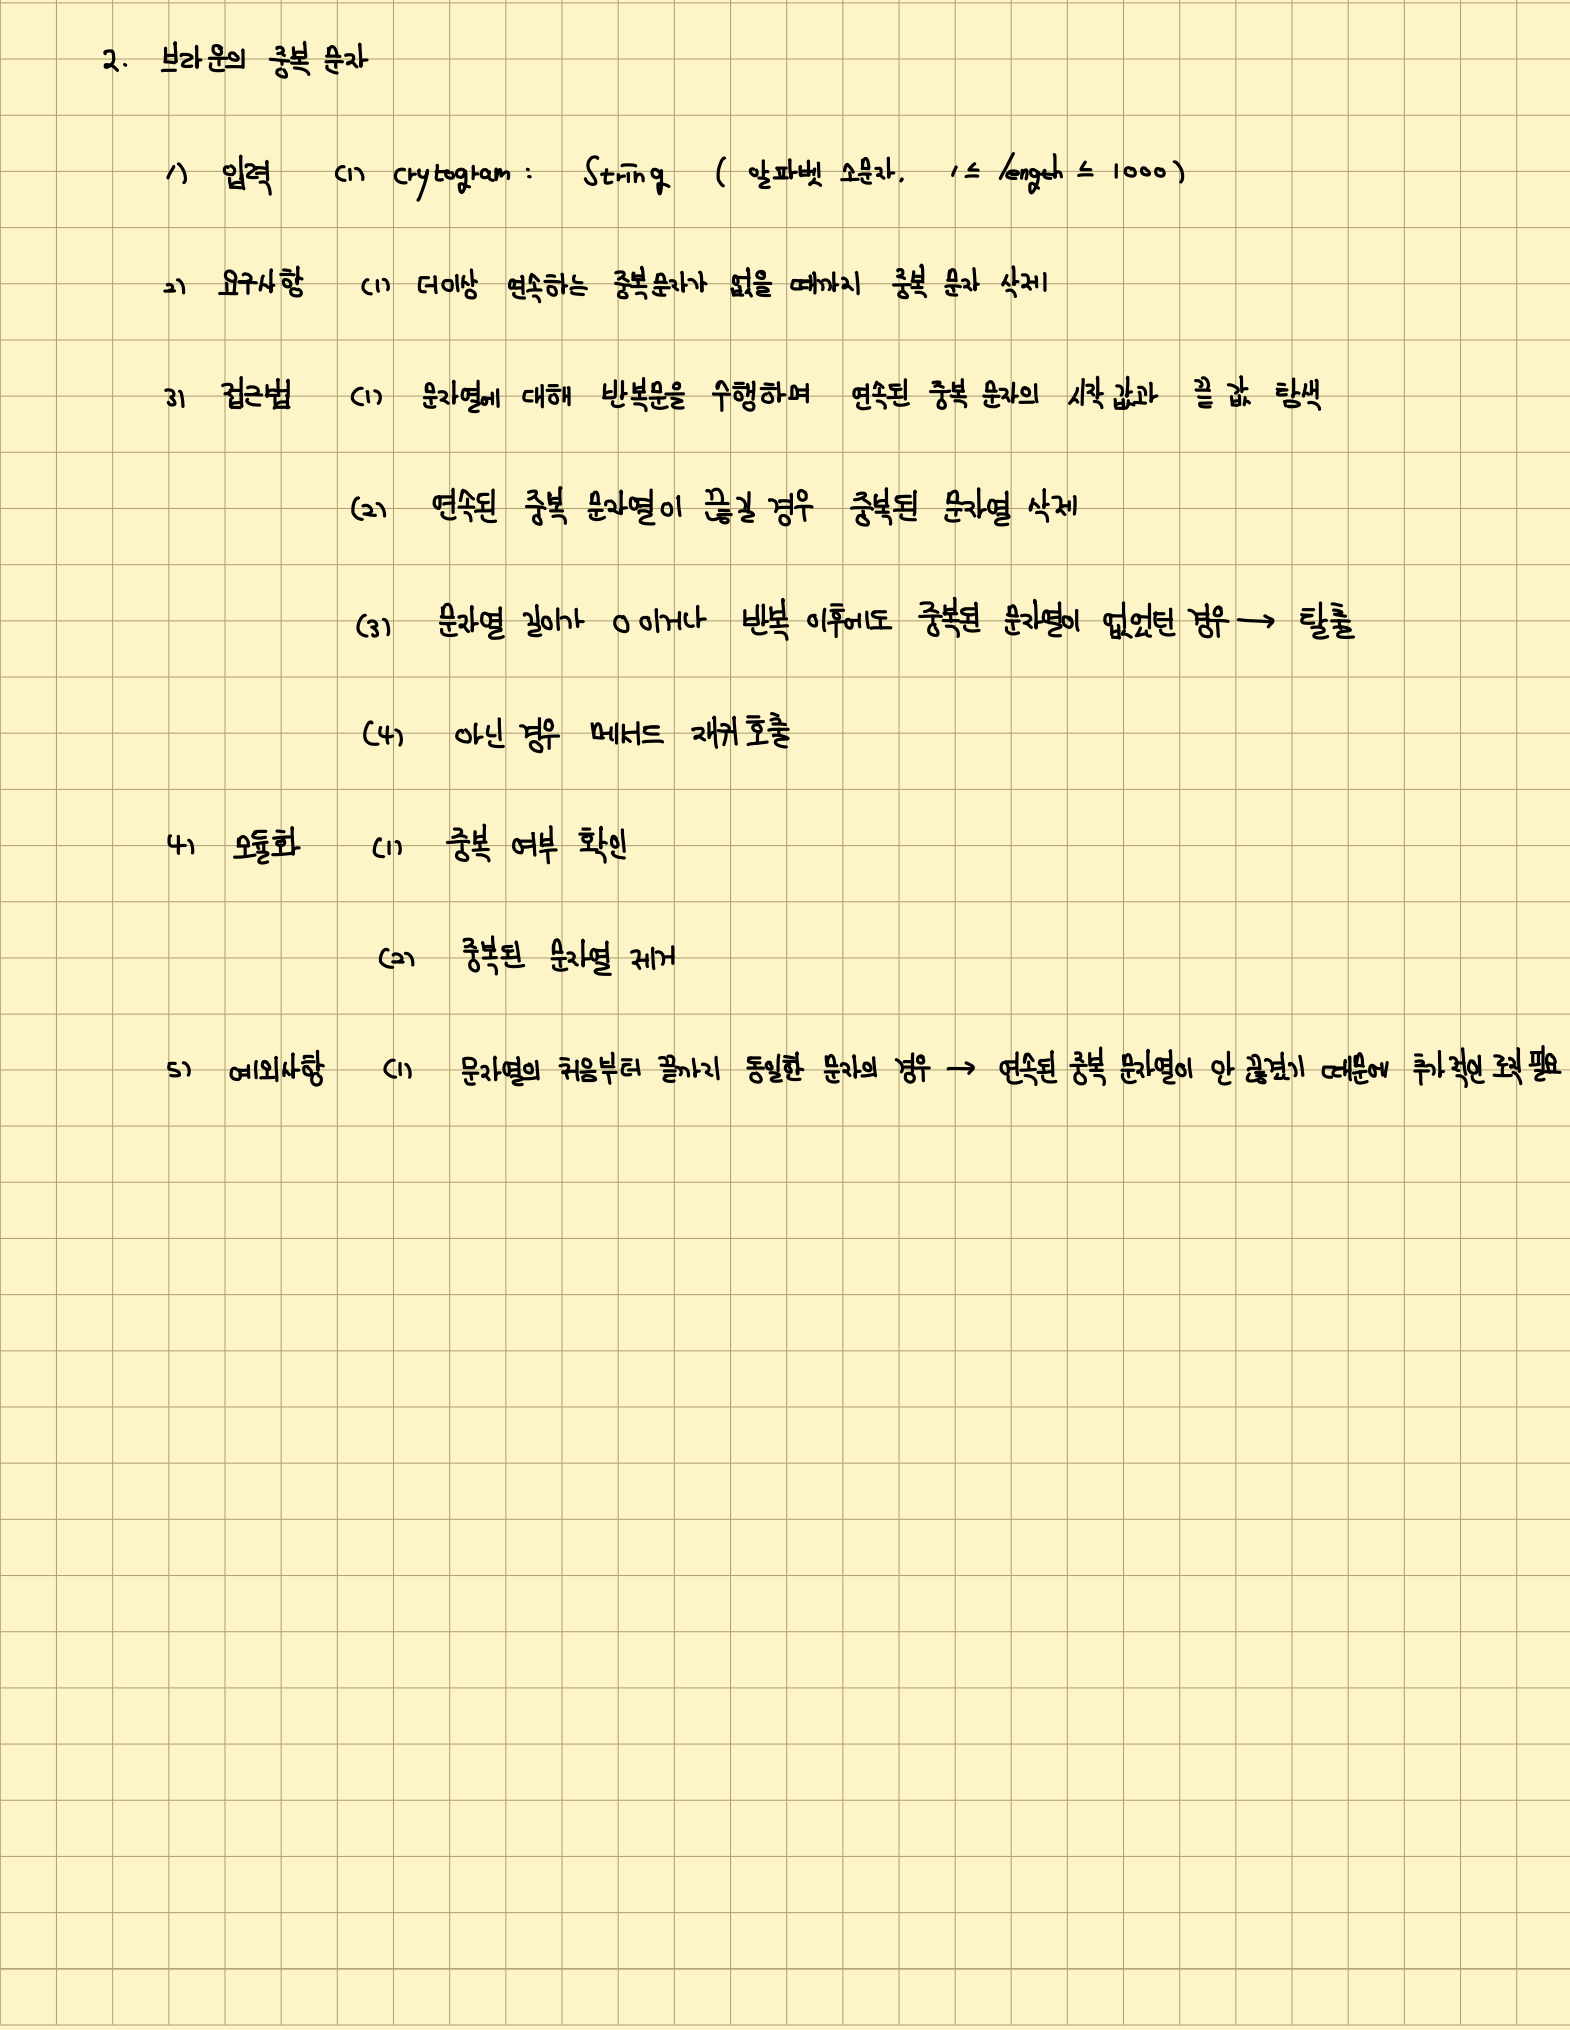 2. 브라운의 중복 문자
1) 입력 (1) crytogram : String ( 알파벳 소문자. 1 ≤ length ≤ 1000 )
2) 요구사항 (1) 더이상 연속하는 중복문자가 없을 때까지 중복 문자 삭제
3) 접근법 (1) 문자열에 대해 반복문을 수행하며 연속된 중복 문자의 시작 값과 끝 값 탐색
(2) 연속된 중복 문자열이 끊길 경우 중복된 문자열 삭제
(3) 문자열 길이가 0 이거나 반복 이후에도 중복된 문자열이 없었던 경우 → 탈출
(4) 아닌 경우 메서드 재귀 호출
4) 모듈화 (1) 중복 여부 확인
(2) 중복된 문자열 제거
5) 예외사항 (1) 문자열의 처음부터 끝까지 동일한 문자의 경우 → 연속된 중복 문자열이 안 끊겼기 때문에 추가적인 로직 필요